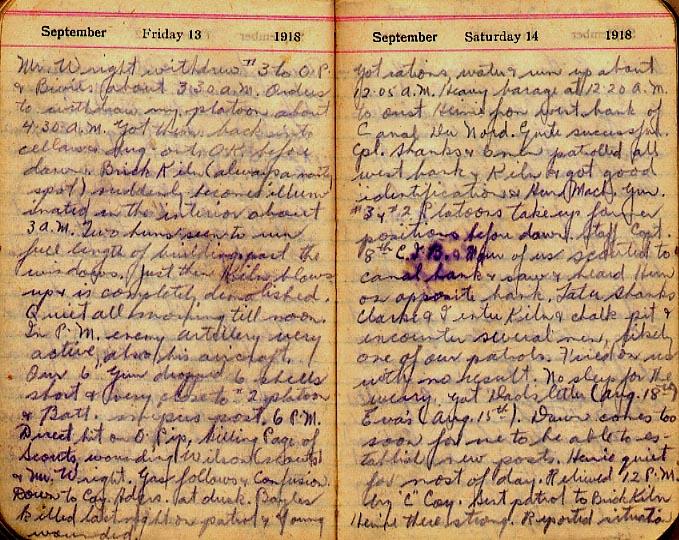 September Friday 13 1918
Mr. Wright withdrew #3 to O.P.
& Bivvies about 3:30 A.M. Orders
to withdraw my platoon about
4:30 A.M. Got them back into
cellars & dug outs O.K. before
dawn. Brick Kiln (always a nasty
spot) suddenly becomes illum
inated in the interior about
3 A.M. Two huns seen to run
full length of building past the
windows. Just then Kiln blows
up & is completely demolished.
Quiet all morning till noon.
In P.M. enemy artillery very
active, also his aircraft.
Our 6" Gun dropped 6 shells
short & very close to #2 platoon
& Batt. post. 6 P.M.
Direct hit on O Pip, killing Page of
Scouts, wounding Wilson (scouts)
& Mr. Wright. Gas follows & Confusion.
Down to Coy Hdqrs. at dusk. Bayles
killed last night on patrol & Young
wounded.
September Saturday 14 1918
Got rations, water & rum up about
12:05 A.M. Heavy barage at 12:20 A.M.
to oust Heinie from west bank of
Canal Du Nord. Quite successful.
Cpl. Shanks & patrolled all
west bank & Kiln & got good
identifications & Hun Mach. Gun.
#3 & #2 Platoons take up former
positions before dawn. Staff Capt.
8th C.I.B. & four of us scouted to
canal bank & saw & heard Hun
on opposite bank. Later Shanks
Clarke & I enter Kiln & chalk pit &
encounter several men, likely
one of our patrols. Fired on us
with no result. No sleep for the
weary. Got Dads letter (Aug. 18th)
Eva's (Aug. 15th). Dawn comes too
soon for me to be able to es-
tablish new posts. Heinie quiet
for most of day. Relieved 12 P.M.
by "C" Coy. Sent patrol to Brick Kiln
Heinie there strong. Reported situation